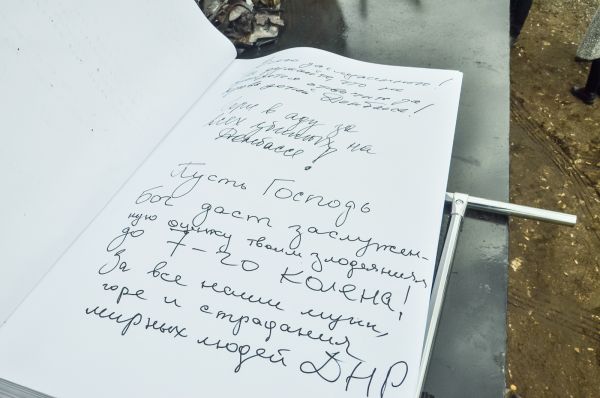 что на
за
Донбасс!
Гори в аду за
всех убитых на
Донбассе!
Пусть Господь
бог даст заслужен-
ную оценку твоим злодеяниям
до 7-го колена!
За все наши муки,
горе и страдания
мирных людей ДНР